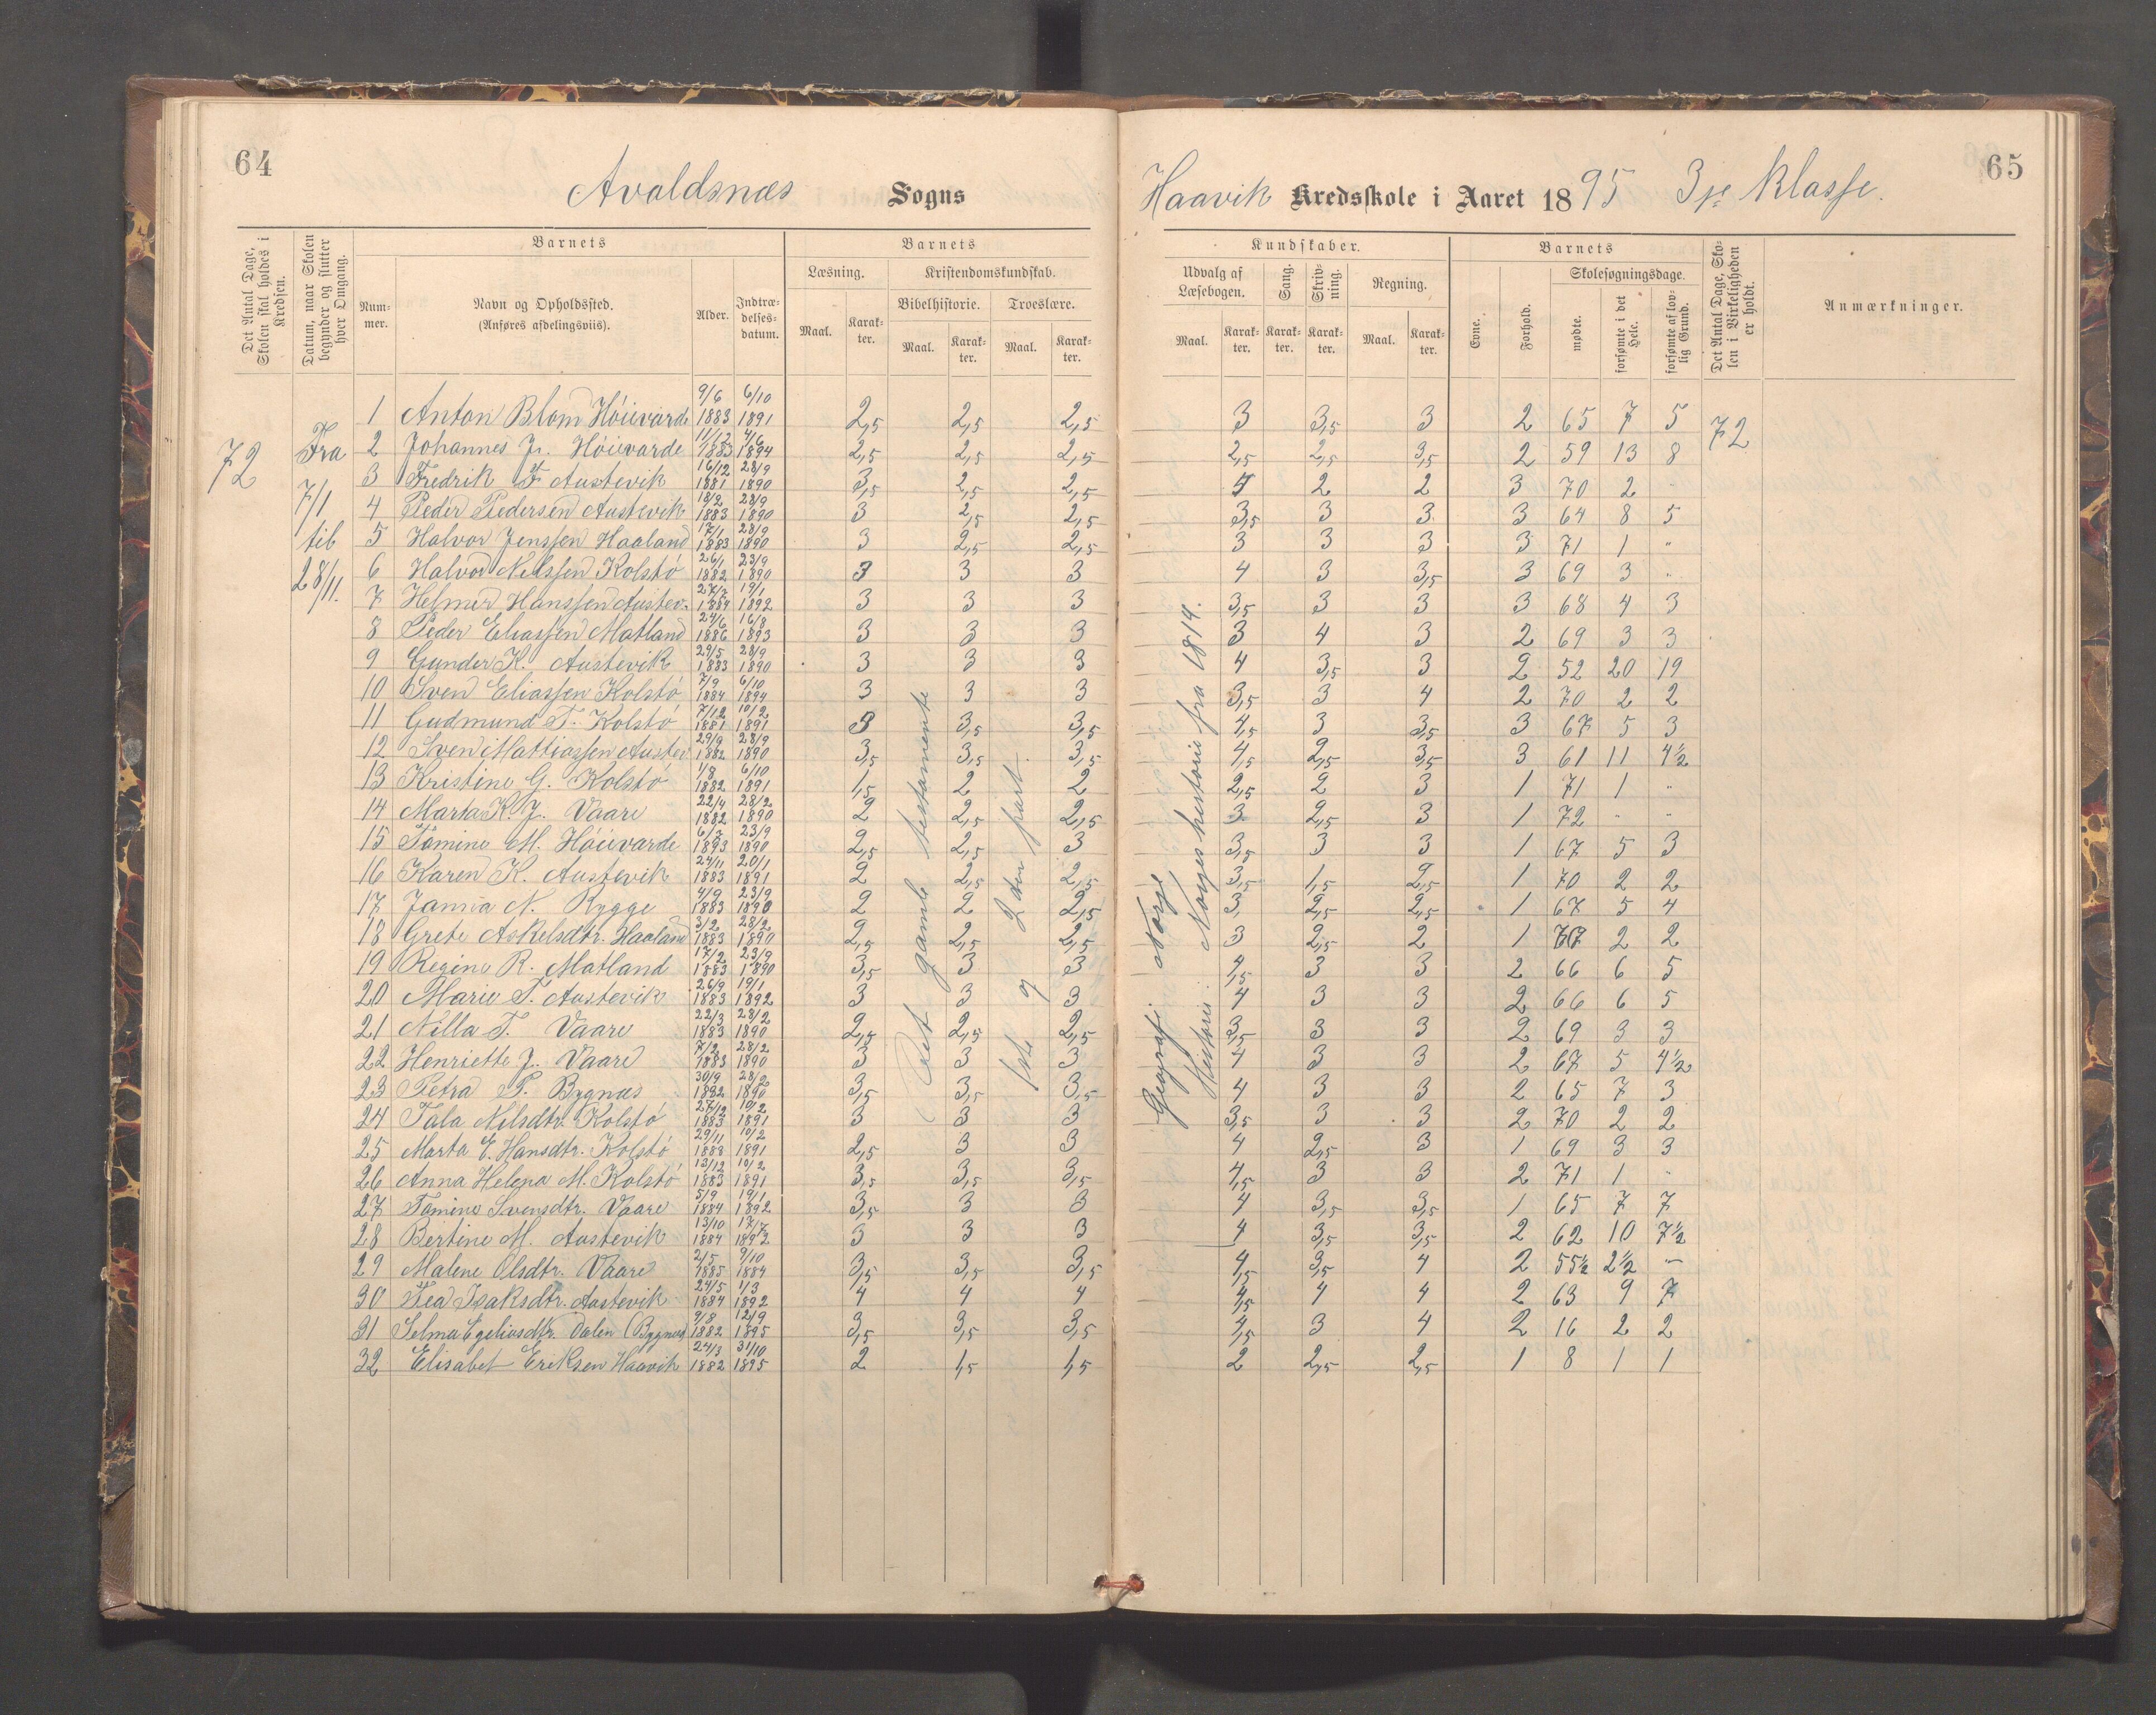 64
Avaldsnæs Sogns
Haavik Kredsskole i Aaret 1895 3je Klasse.
65
Det Antal Dage, Skolen skal holdes i Kredsen.
Datum, naar Skolen begynder og slutter hver Omgang.
Barnets
Barnets
Kundskaber.
Barnets
Det Antal Dage, Skolen i Virkeligheden er holdt.
Anmærkninger.
Nummer.
Navn og Opholdssted. (Anføres afdelingsviis).
Alder.
Indtrædelsesdatum.
Læsning.
Kristendomskundskab.
Bibelhistorie.
Troeslære.
Udvalg af Læsebogen.
Sang.
Skrivning.
Regning.
Evne.
Forhold.
Skolesøgningsdage.
mødte.
forsømte i det Hele.
forsømte af lovlig Grund.
Maal. Karakter. Maal. Karakter. Maal. Karakter.
Maal. Karakter. Karakter. Karakter. Maal. Karakter.
72
Fra
7/1
til
28/11.
72
Det gamle testamente
1ste og 2den part.
Geografi: Norge.
Historie: Norges historie fra 1814.
1 Anton Blom Höievarde 9/6 1883 6/10 1891 2,5 2,5 2,5 3 3,5 3 2 65 7 5
2 Johannes J. Höievarde 11/12 1883 4/6 1894 2,5 2,5 2,5 2,5 2,5 3,5 2 59 13 8
3 Fredrik F. Austevik 16/12 1881 28/9 1890 3,5 2,5 2,5 4 2 2 3 70 2 "
4 Peder Pedersen Austevik 18/2 1883 28/9 1890 3 2,5 2,5 3,5 3 3 3 64 8 5
5 Halvor Jenssen Haaland 17/1 1883 28/9 1890 3 2,5 2,5 3 3 3 3 71 1 "
6 Halvor Nilssen Kolstö 26/1 1882 23/9 1890 3 3 3 4 3 3,5 3 69 3 "
7 Helmer Hanssen Austev. 27/2 1884 19/1 1892 3 3 3 3,5 3 3 3 68 4 3
8 Peder Eliassen Matland 24/6 1886 16/8 1893 3 3 3 3 4 3 2 69 3 3
9 Gunder K. Austevik 29/5 1883 28/9 1890 3 3 3 4 3,5 3 2 52 20 19
10 Sven Eliassen Kolstö 7/9 1884 6/10 1894 3 3 3 3,5 3 4 2 70 2 2
11 Gudmund T. Kolstö 7/12 1881 10/2 1891 3 3,5 3,5 4,5 3 3,5 3 67 5 3
12 Sven Mattiassen Austev. 29/9 1882 28/9 1890 3,5 3,5 3,5 4,5 2,5 3,5 3 61 11 4½
13 Kristine G. Kolstö 1/8 1882 6/10 1891 1,5 2 2 2,5 2 3 1 71 1 "
14 Marta K. J. Vaare 22/4 1882 28/2 1890 2 2,5 2,5 3 2,5 3 1 72 " "
15 Tomine M. Höievarde 6/7 1893 23/9 1890 2,5 2,5 3 3,5 3 3 1 67 5 3
16 Karen K. Austevik 24/11 1883 20/1 1891 2 2,5 2,5 3,5 1,5 2,5 1 70 2 2
17 Janna N. Rygge 4/9 1883 23/9 1890 2 2 2,5 3, 2,5 2,5 1 67 5 4
18 Grete Askelsdtr. Haaland 3/2 1883 28/2 1890 2,5 2,5 2,5 3 2,5 2 1 70 2 2
19 Regine R. Matland 17/2 1883 23/9 1890 3,5 3 3 4,5 3 3 2 66 6 5
20 Marie T. Austevik 26/9 1883 19/1 1892 3 3 3 4 3 3 2 66 6 5
21 Nilla T. Vaare 22/3 1883 28/2 1890 2,5 2,5 2,5 3,5 3 3 2 69 3 3
22 Henriette J. Vaare 7/2 1883 28/2 1890 3 3 3 4 3 3 2 67 5 4½
23 Petra P. Bygnæs 30/9 1882 28/2 1890 3,5 3,5 3,5 4 3 3 2 65 7 3
24 Tala Nilsdtr. Kolstö 27/12 1883 10/2 1891 3 3 3 3,5 3 3 2 70 2 2
25 Marta E. Hansdtr. Kolstö 29/11 1888 10/2 1891 2,5 3 3 4 2,5 3 1 69 3 3
26 Anna Helena M. Kolstö 13/12 1883 10/2 1891 3,5 3,5 3,5 4,5 3 3 2 71 1 "
27 Tomine Svensdtr. Vaare 5/9 1884 19/1 1892 3,5 3 3 4 3,5 3,5 1 65 7 7
28 Bertine M. Austevik 13/10 1884 17/7 1892 3 3 3 4 3,5 3,5 2 62 10 7½
29 Malene Olsdtr. Vaare 2/5 1885 9/10 1884 3,5 3,5 3,5 4,5 3,5 4 2 55½ 2½ "
30 Tea Isaksdtr. Austevik 24/5 1884 1/3 1892 4 4 4 4,5 4 4 2 63 9 7
31 Selma Egeliusdtr. Dalen (Bygnæs) 9/8 1882 12/9 1895 3,5 3,5 3,5 4,5 3 4 2 16 2 2
32 Elisabet Eriksen Haavik 24/3 1882 31/10 1895 2 1,5 1,5 2 2,5 2,5 1 8 1 1